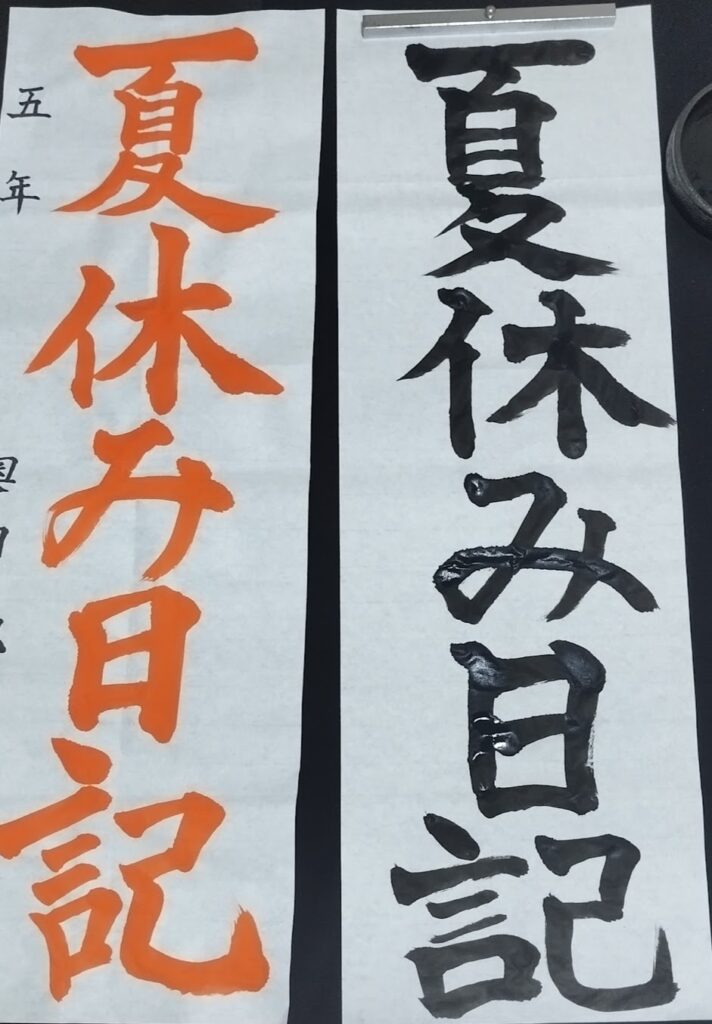 夏休み日記
夏休み日記
五年